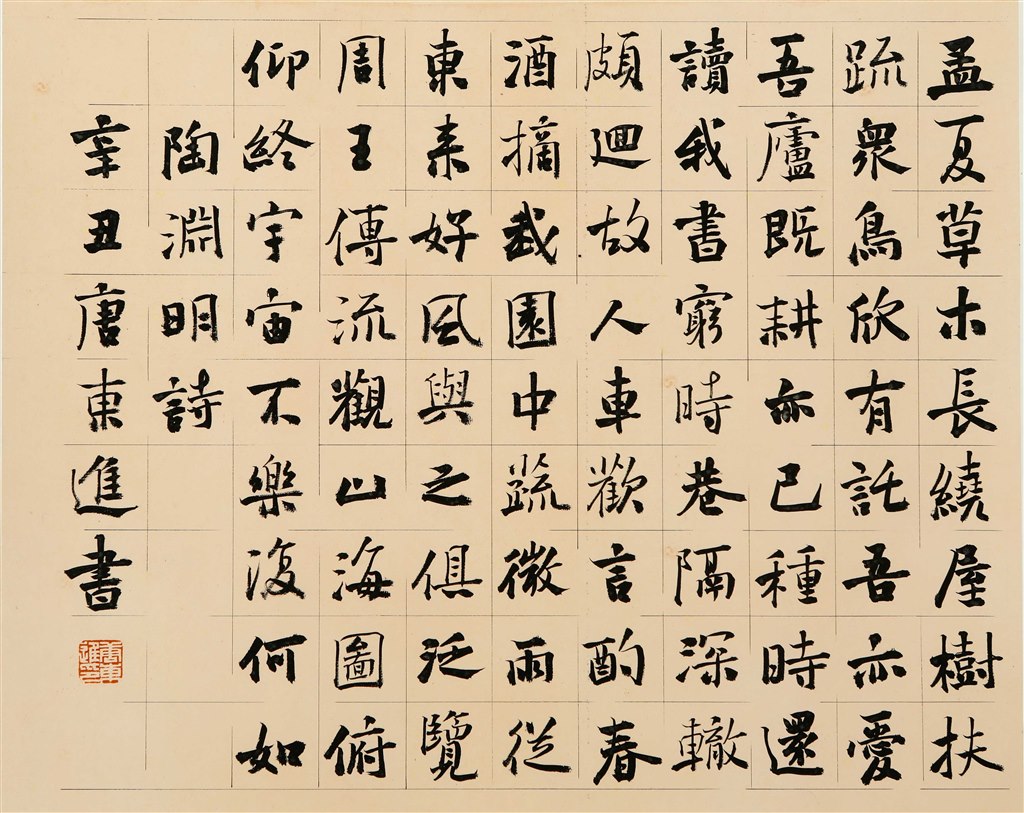 孟夏草木長繞屋樹扶
疏衆鳥欣有託吾亦愛
吾廬既耕亦已種時還
讀我書窮時巷隔深轍
頗迴故人車歡言酌春
酒摘我園中蔬微雨從
東来好風與之俱泛覽
周王傳流觀山海圖俯
仰終宇宙不樂復何如
陶淵明詩
辛丑唐東進書
唐東進印